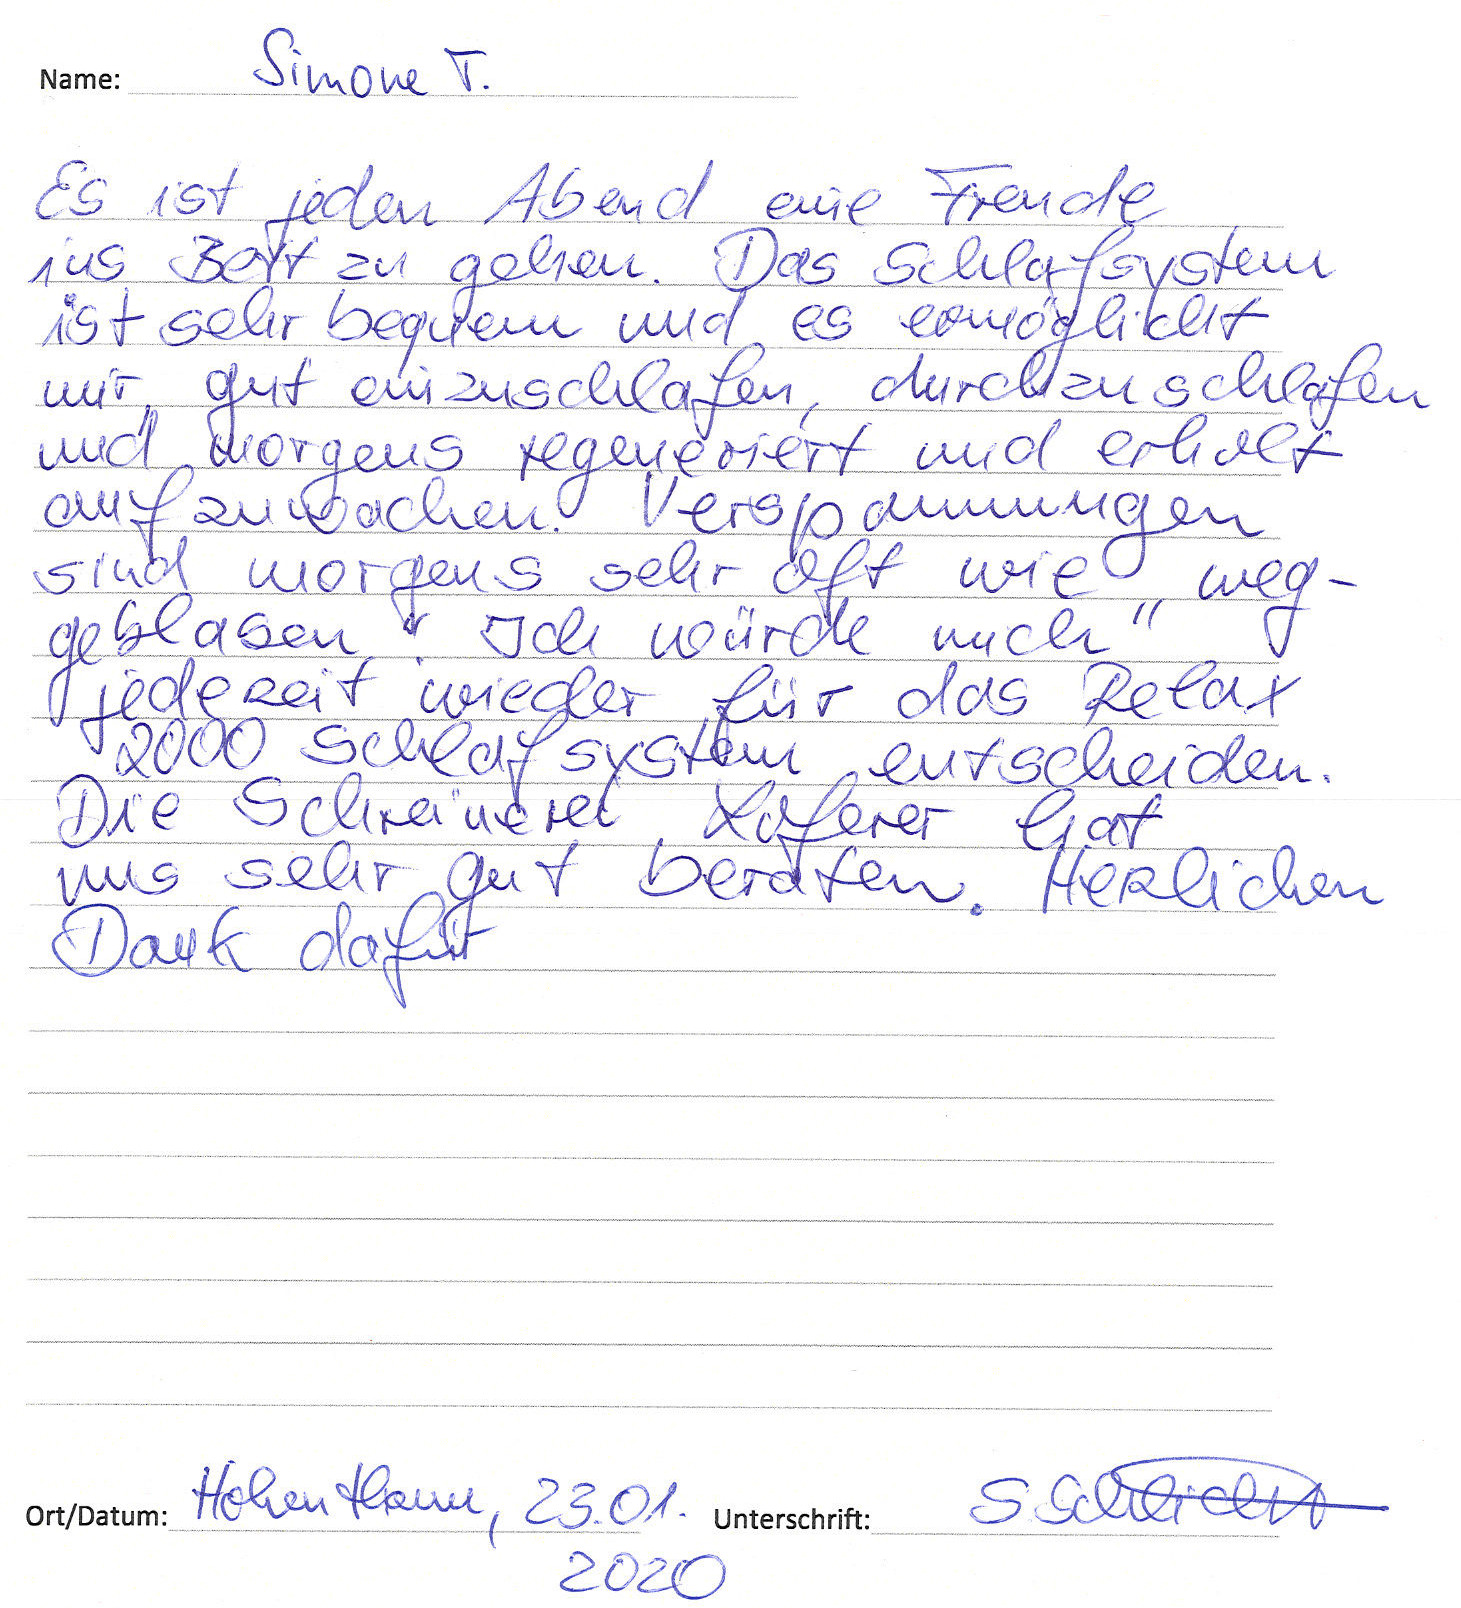 Name: Simone T.
Es ist jeden Abend eine Freude
ins Bett zu gehen. Das Schlafsystem
ist sehr bequem und es ermöglicht
mir, gut einzuschlafen, durchzuschlafen
und morgens regeneriert und erholt
aufzuwachen. Verspannungen
sind morgens sehr oft wie „weg-
geblasen“. Ich würde mich
jederzeit wieder für das Relax
2000 Schlafsystem entscheiden.
Die Schreinerei hat
uns sehr gut beraten. Herzlichen
Dank dafür
Ort/Datum: Hohenthann, 23.01. Unterschrift: S.
2020